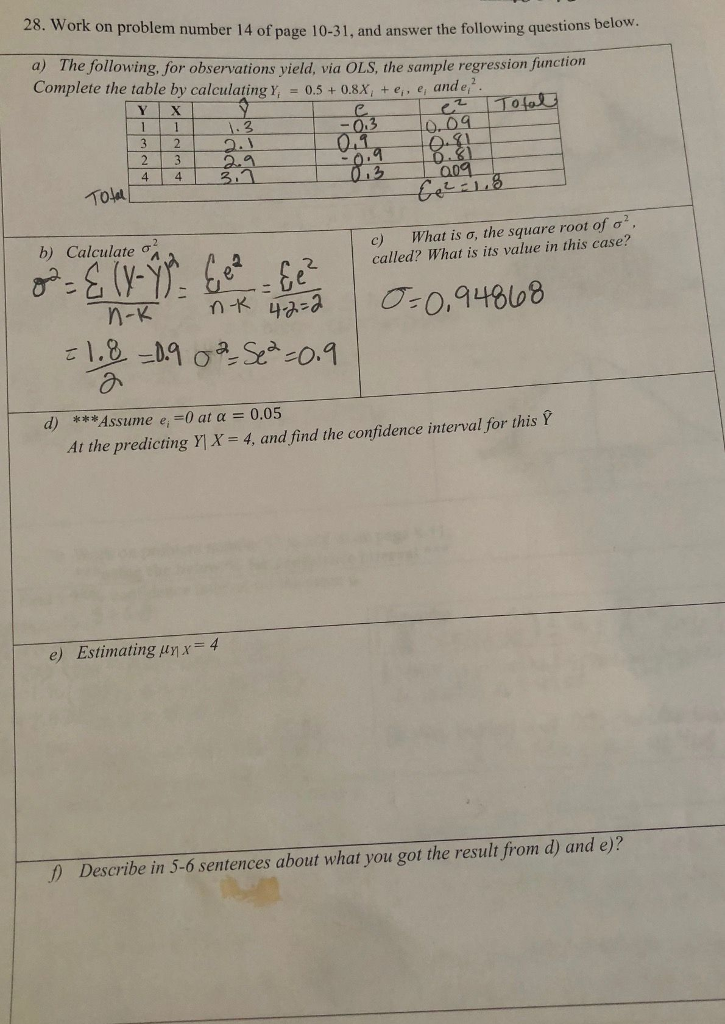 28. Work on problem number 14 of page 10-31, and answer the following questions below.
a) The following, for observations yield, via OLS, the sample regression function
Complete the table by calculating Yᵢ = 0.5 + 0.8Xᵢ + eᵢ, eᵢ and eᵢ².
Y X Ŷ e e² Total
1 1 1.3 -0.3 0.09
3 2 2.1 0.9 0.81
2 3 2.9 -0.9 0.81
4 4 3.7 0.3 009
Total Σe²=1.8
b) Calculate σ²
σ² = Σ(Y-Ŷ)²/n-K = Σe²/n-K = Σe²/4-2=2
= 1.8/2 =0.9 σ²=Se²=0.9
c) What is σ, the square root of σ²,
called? What is its value in this case?
σ=0.94868
d) ***Assume eᵢ=0 at α = 0.05
At the predicting Y| X = 4, and find the confidence interval for this Ŷ
e) Estimating μY| X = 4
f) Describe in 5-6 sentences about what you got the result from d) and e)?